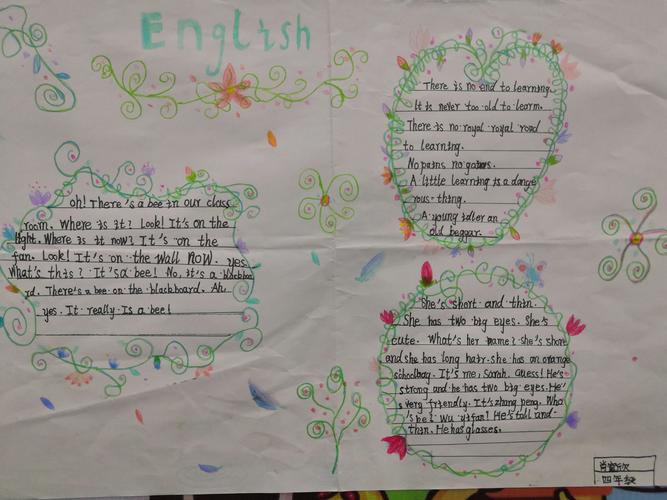 English
oh! There's a bee in our class
room. Where is it? Look! It's on the
light. Where is it now? It's on the
fan. Look! It's on the wall NOW. yes.
What's this? It'sa bee! No, it's a blackboa
rd. There's a bee on the blackboard. Ah,
yes. It really Is a bee!
There is no end to learning.
It is never too old to learn.
There is no royal royal road
to learning.
No pains no gains.
A little learning is a dange
rous thing.
A young idler an
old beggar.
She's short and thin.
She has two big eyes. She's
cute. What's her name? she's short
and she has long hair. she has an orange
schoolbag. It's me, Sarah. Guess! He's
strong and he has two big eyes. He'
s very friendly. It's zhang peng. Who
's he? Wu yifan! He's tall and
thin. He has glasses.
四年级